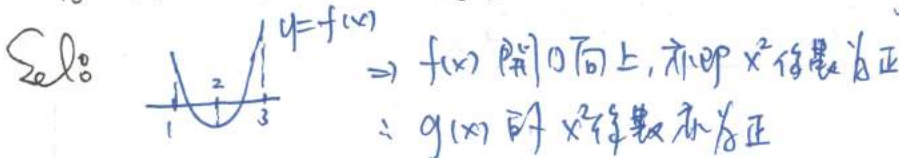 Sol:
y=f(x)
1 2 3
⇒ f(x) 開口向上, 亦即 x² 係數為正
∴ g(x) 的 x² 係數亦為正